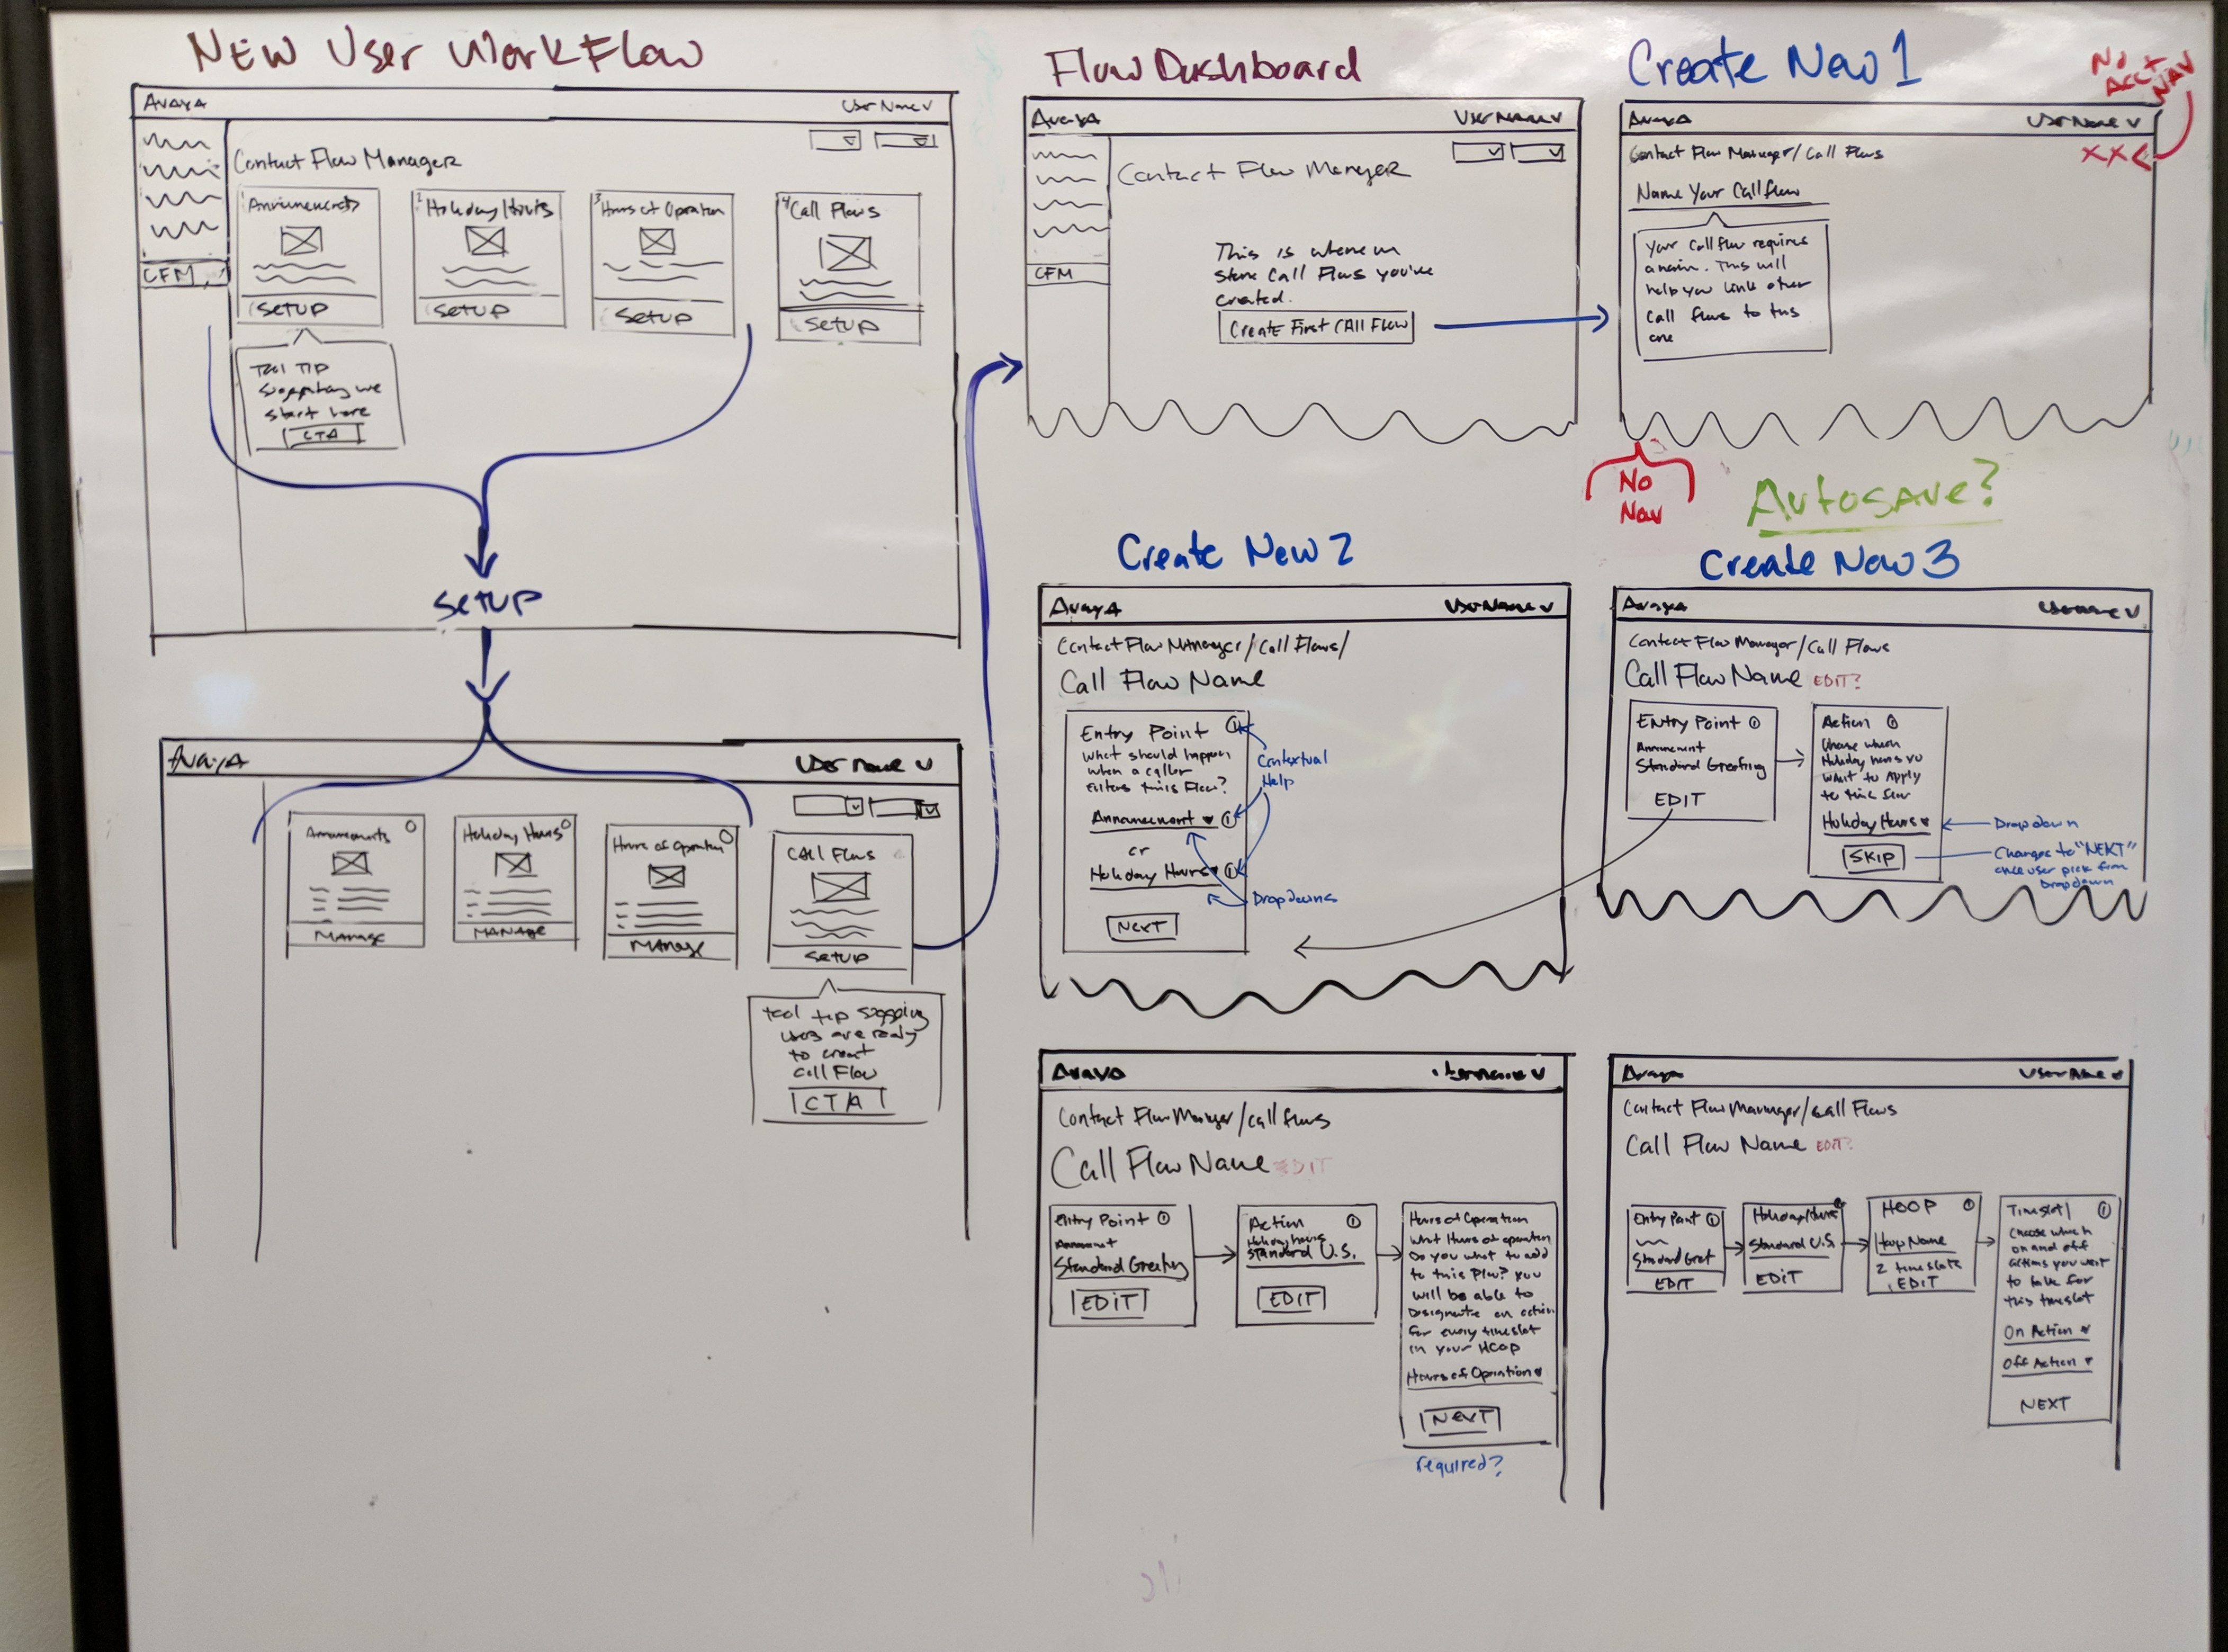 New User Workflow
Avaya
UserName v
Contact Flow Manager
1 Announcements
2 Holiday Hours
3 Hours of Operation
4 Call Flows
CFM
Setup
Setup
Setup
Setup
Tool Tip
suggesting we
start here
CTA
Setup
Avaya
User name v
Announcements
Holiday Hours
Hours of Operation
Call Flows
Manage
Manage
Manage
Setup
tool tip
users are ready
to creat
call Flow
CTA
Flow Dashboard
Avaya
UserName v
Contact Flow Manager
CFM
This is where
store Call Flows you've
created.
Create First Call Flow
Create New 1
No
Acct
Nav
Avaya
UserName v
Contact Flow Manager/Call Flows
XX
Name Your Callflow
Your Callflow requires
a name. This will
help you link other
call flows to this
one
No
Nav
Autosave?
Create New 2
Avaya
UserName v
Contact Flow Manager/Call Flows/
Call Flow Name
Entry Point
What should happen
when a caller
enters this Flow?
Announcement
or
Holiday Hours
Next
Contextual
Help
Dropdowns
Create New 3
Avaya
Username v
Contact Flow Manager/Call Flows
Call Flow Name EDIT?
Entry Point
Announcement
Standard Greeting
EDIT
Action
Choose which
Holiday hours
want to Apply
to this flow
Holiday Hours
SKIP
Dropdown
Changes to "NEXT"
once user pick from
Dropdown
Avaya
Username v
Contact Flow Manager/call flows
Call Flow Name EDIT
Entry Point
Standard Greeting
EDIT
Action
Holiday hours
Standard U.S.
EDIT
Hours of Operation
What Hours of operation
Do you want to add
to this Flow? You
will be able to
Designate an action
for every timeslot
in your HOOP
Hours of Operation
NEXT
required?
Avaya
UserName
Contact Flow Manager/Call Flows
Call Flow Name EDIT?
Entry Point
Standard Greet
EDIT
Holiday Hours
Standard U.S
EDIT
HOOP
Hoop Name
2 timeslots
EDIT
Timeslot 1
Choose which
on and off
actions you want
to take for
this timeslot
On Action
Off Action
NEXT